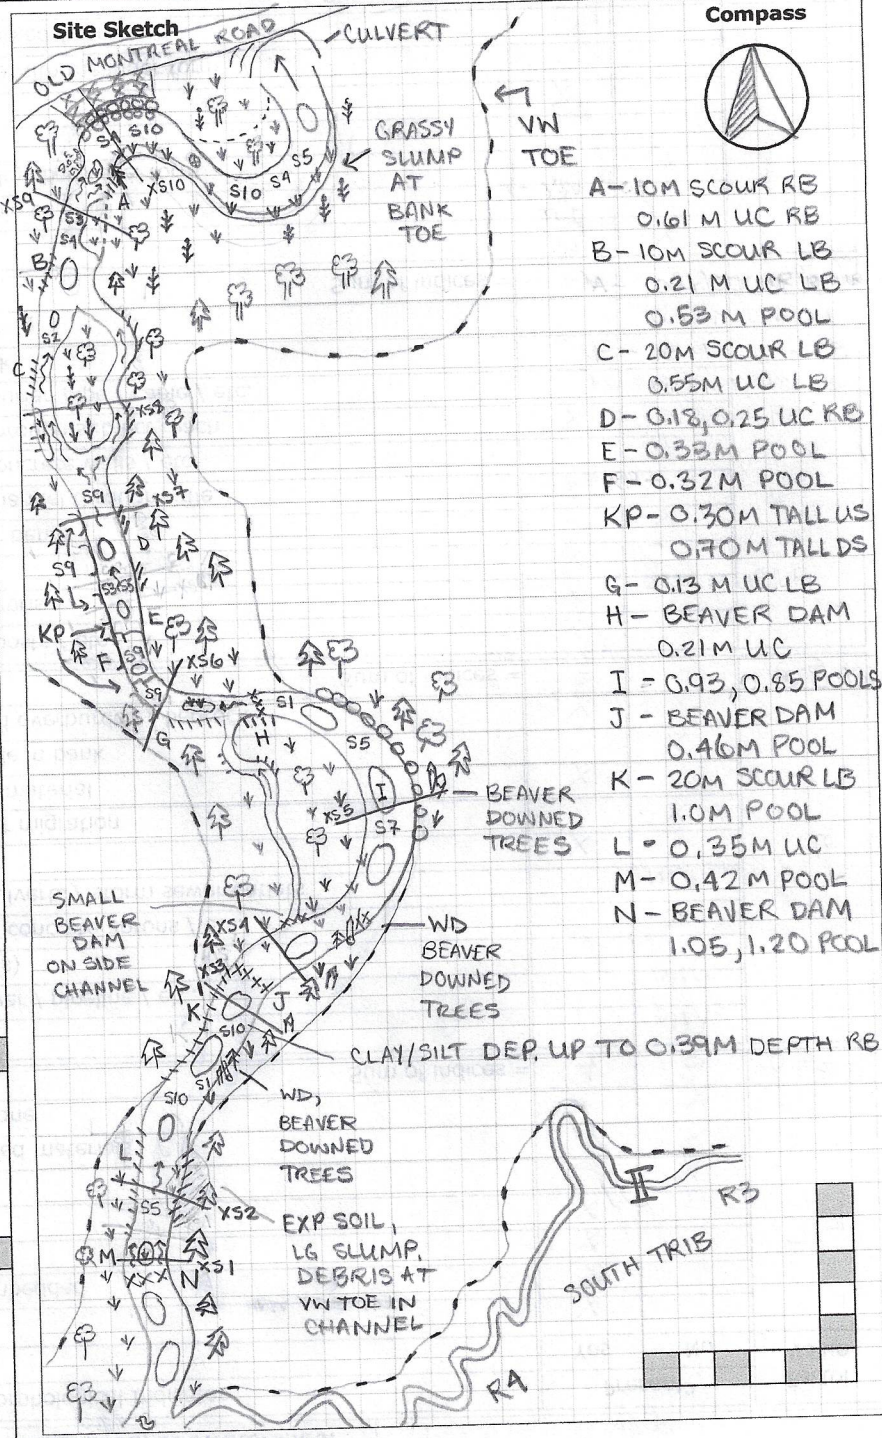 Site Sketch
Compass
OLD MONTREAL ROAD
CULVERT
VW
TOE
GRASSY
SLUMP
AT
BANK
TOE
S9
S10
XS10
A
S10
S4
S5
XS9
S3
S4
B
S2
C
XS8
S9
XS7
D
S9
S3/S5
E
KP
F
S9
XS6
S9
G
S1
H
S5
I
XS5
S7
BEAVER
DOWNED
TREES
SMALL
BEAVER
DAM
ON SIDE
CHANNEL
XS4
WD
BEAVER
DOWNED
TREES
XS3
K
J
S10
CLAY/SILT DEP. UP TO 0.39M DEPTH RB
S1
S10
WD,
BEAVER
DOWNED
TREES
L
S5
XS2
EXP SOIL,
LG SLUMP.
DEBRIS AT
VW TOE IN
CHANNEL
M
XS1
N
A-10M SCOUR RB
0.61 M UC RB
B-10M SCOUR LB
0.21 M UC LB
0.53 M POOL
C-20M SCOUR LB
0.55M UC LB
D-0.18, 0.25 UC RB
E-0.33M POOL
F-0.32M POOL
KP-0.30M TALL US
0.70M TALL DS
G-0.13 M UC LB
H-BEAVER DAM
0.21M UC
I-0.93, 0.85 POOLS
J-BEAVER DAM
0.46M POOL
K-20M SCOUR LB
1.0M POOL
L-0.35M UC
M-0.42M POOL
N-BEAVER DAM
1.05, 1.20 POOL
II
R3
SOUTH TRIB
R4